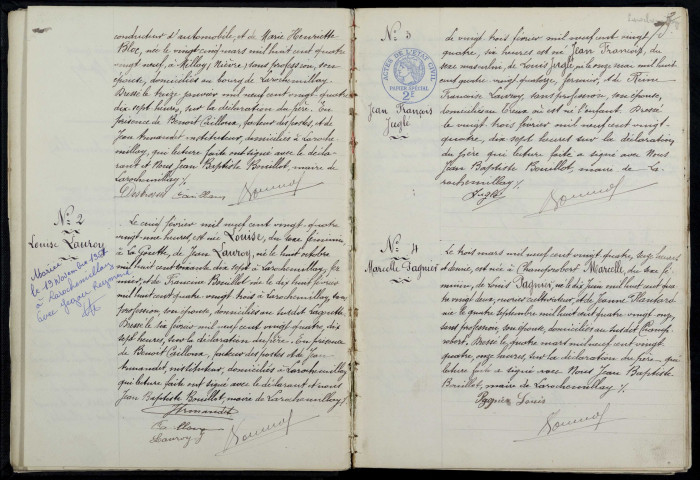 conducteur d'automobile, et de Marie Henriette
Bloc, née le vingt cinq mars mil huit cent quatre
vingt neuf, à Millay, Nièvre, sans profession, son
épouse, domiciliés au bourg de Larochemillay.
Dressé le treize janvier mil neuf cent vingt quatre
dix sept heures, sur la déclaration du père. En
présence de Benoit Cailloux, facteur des postes, et de
Jean Armandet instituteur, domiciliés à Laroche
millay, qui lecture faite ont signé avec le décla-
rant et Nous Jean Baptiste Bouillot, maire de
Larochemillay ./.
N° 2
Louise Lauroy
Mariée
le 19 novembre
à Larochemillay
avec
Le cinq février mil neuf cent vingt quatre
vingt une heures, est née Louise, du sexe féminin
à La Goutte, de Jean Lauroy, né le huit octobre
mil huit cent soixante dix sept à Larochemillay, fer
mier, et de Francine Bouillot née le dix huit février
mil huit cent quatre vingt trois à Larochemillay, sans
profession, son épouse, domiciliés au susdit
Dressé le dix février mil neuf cent vingt quatre, dix
sept heures, sur la déclaration du père. En présence
de Benoit Cailloux, facteur des postes et de Jean
Armandet, instituteur, domiciliés à Larochemillay,
qui lecture faite ont signé avec le déclarant et nous
Jean Baptiste Bouillot, maire de Larochemillay ./.
Armandet
Lauroy J
N° 3
ACTES DE L'ÉTAT CIVIL
PAPIER SPÉCIAL
2F
Jean François
Juglé
Le vingt trois février mil neuf cent vingt
quatre, six heures est né Jean François, du
sexe masculin, de Louis Juglé né le onze mai mil huit
cent quatre vingt quatorze, fermier, et de Reine
Francine Lauroy, sans profession, son épouse,
domiciliés au Creux où est né l'enfant. Dressé
le vingt trois février mil neuf cent vingt-
quatre, dix sept heures, sur la déclaration
du père qui lecture faite a signé avec Nous
Jean Baptiste Bouillot, maire de La-
rochemillay ./.
Juglé
N° 4
Marcelle Pagnier
Le trois mars mil neuf cent vingt quatre, sept heures
et demie, est née à Champrobert, Marcelle, du sexe fé
minin, de Louis Pagnier, né le dix juin mil huit cent qua
tre vingt deux, cultivateur, et de Jeanne
née le quatre septembre mil huit cent quatre vingt onze,
sans profession, son épouse, domiciliés au susdit Champ
robert. Dressé le quatre mars mil neuf cent vingt
quatre, onze heures, sur la déclaration du père, qui
lecture faite a signé avec Nous Jean Baptiste
Bouillot, maire de Larochemillay ./.
Pagnier Louis